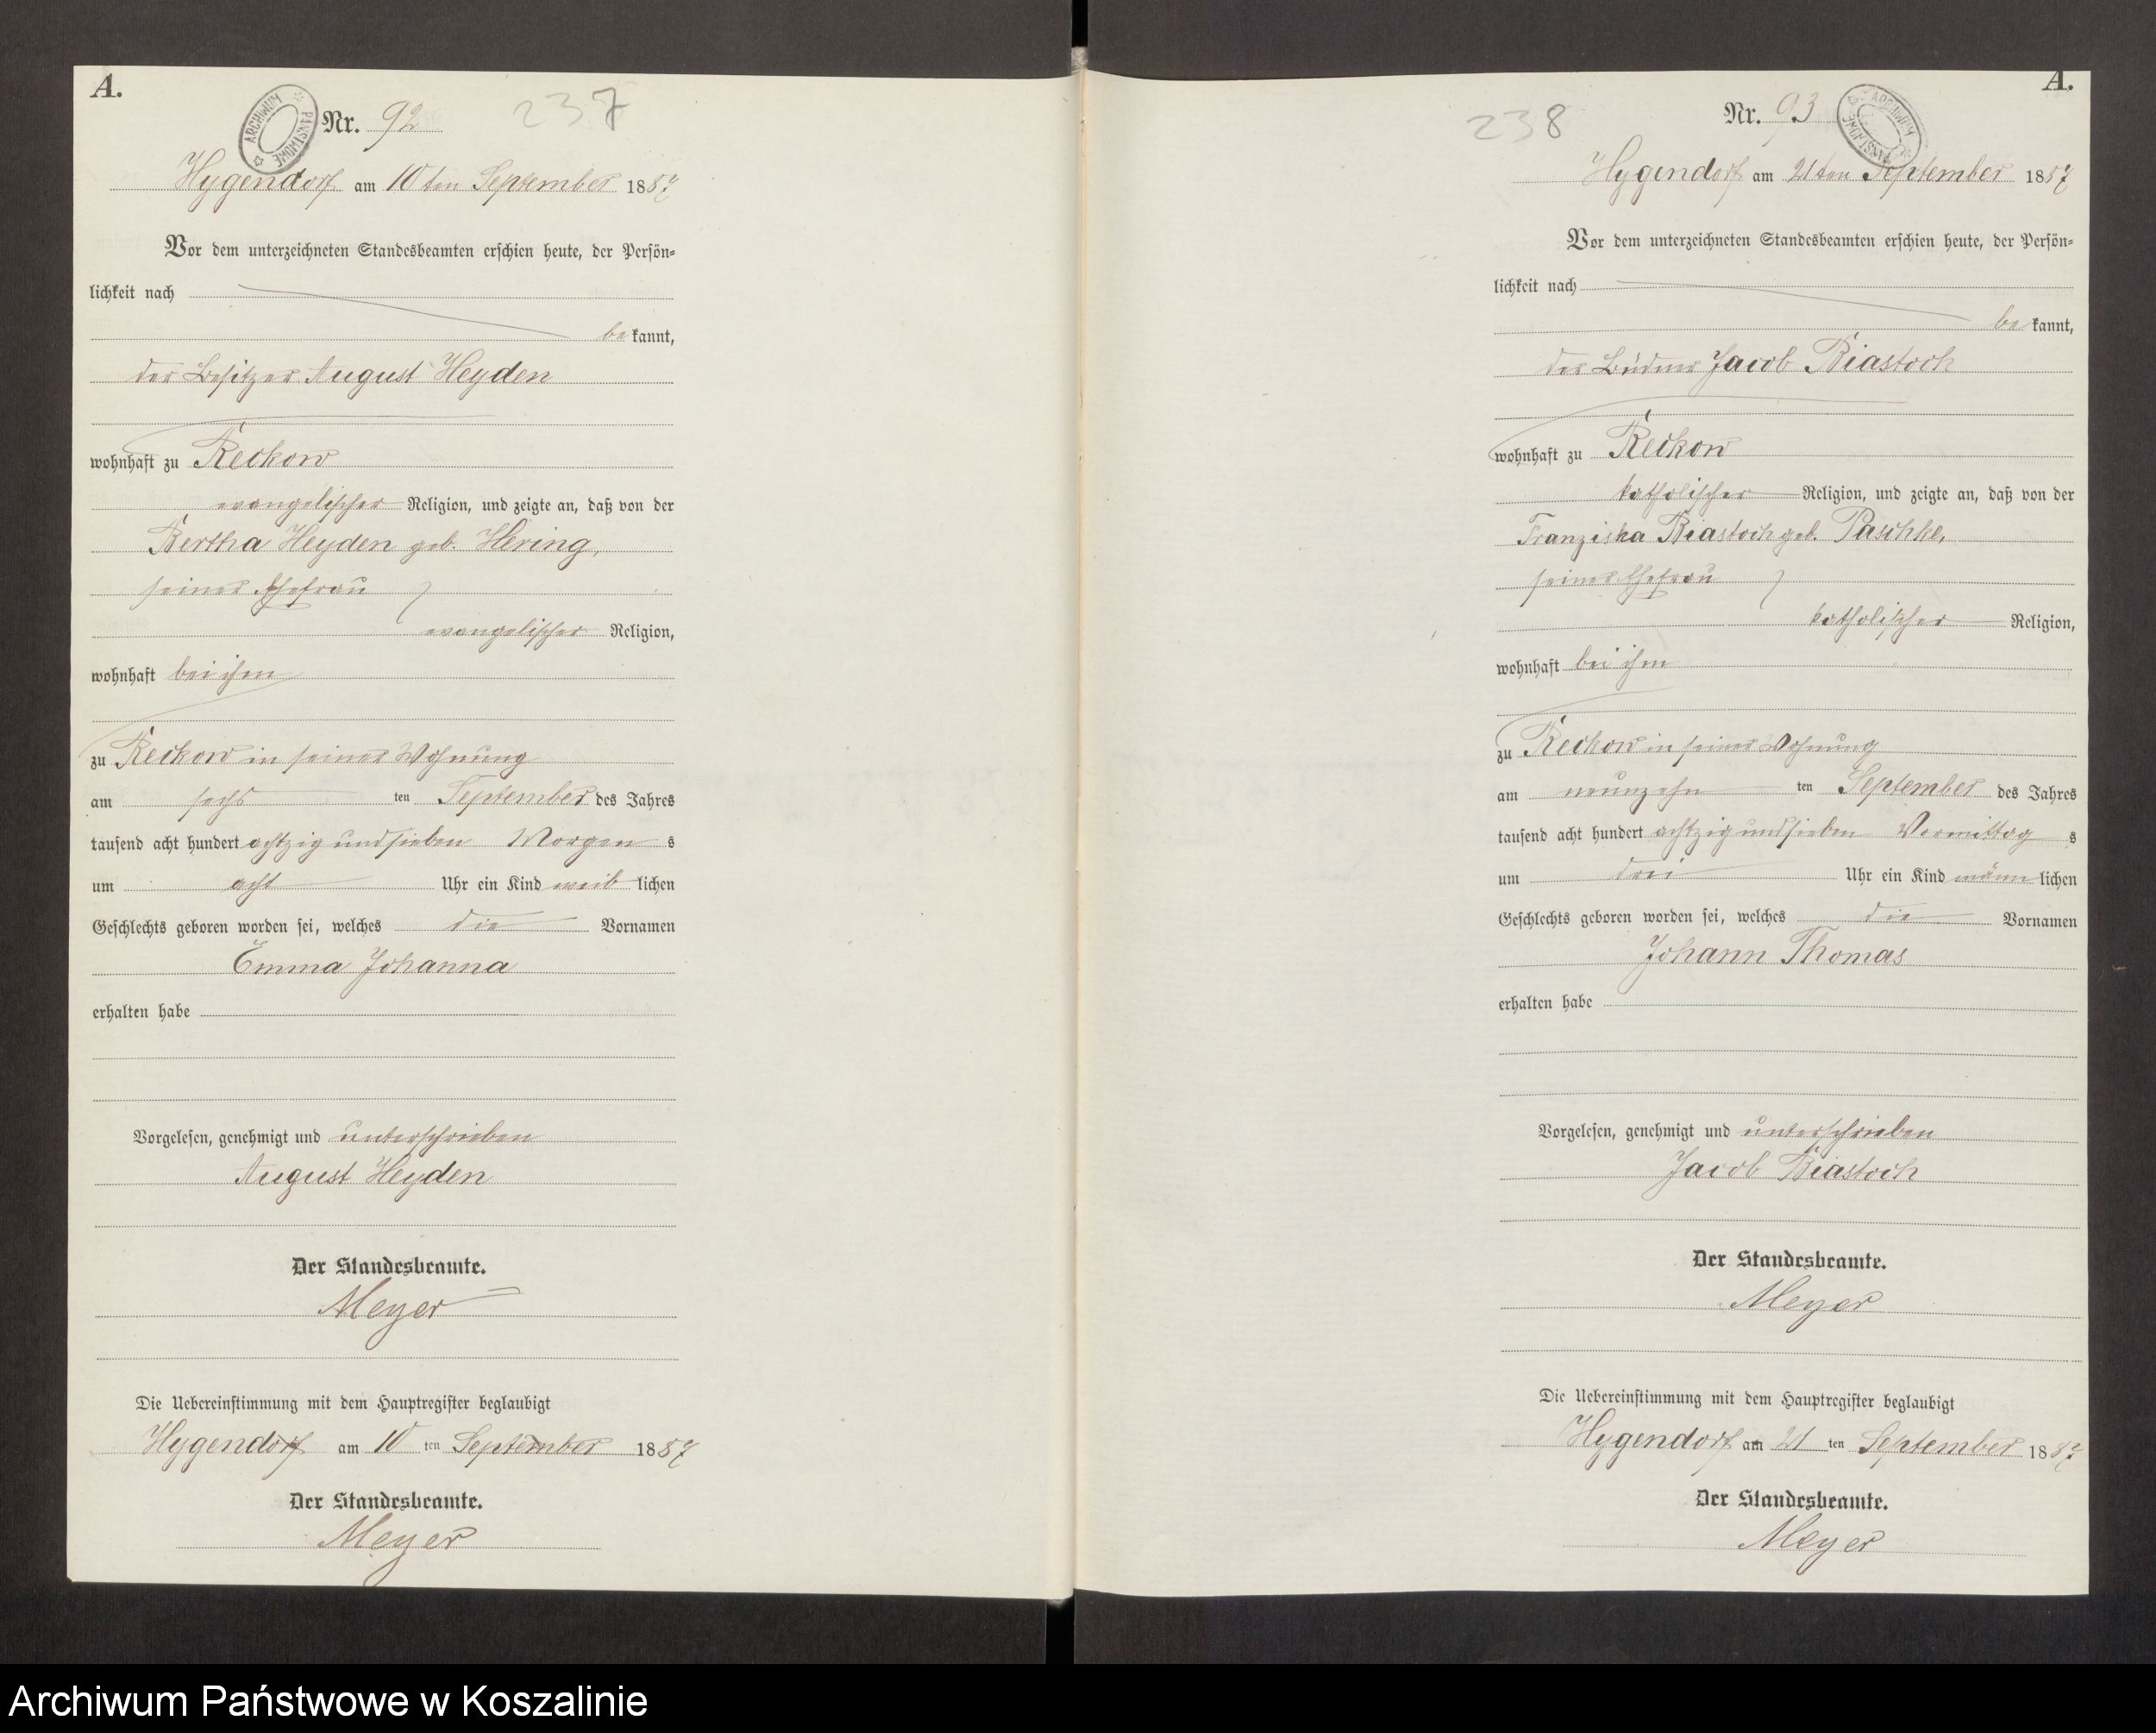 A.
ARCHIWUM PAŃSTWOWE
237
Nr. 92
Hygendorf am 10ten September 1887
Vor dem unterzeichneten Standesbeamten erschien heute, der Persön-
lichkeit nach
bekannt,
der Besitzer August Heyden
wohnhaft zu Reckow
evangelischer Religion, und zeigte an, daß von der
Bertha Heyden geb. Hering,
seiner Ehefrau
evangelischer Religion,
wohnhaft bei ihm
zu Reckow in seiner Wohnung
am sechs ten September des Jahres
tausend acht hundert achtzig und sieben Morgens
um acht Uhr ein Kind weiblichen
Geschlechts geboren worden sei, welches die Vornamen
Emma Johanna
erhalten habe
Vorgelesen, genehmigt und unterschrieben
August Heyden
Der Standesbeamte.
Meyer
Die Uebereinstimmung mit dem Hauptregister beglaubigt
Hygendorf am 10 ten September 1887
Der Standesbeamte.
Meyer
A.
ARCHIWUM PAŃSTWOWE
238
Nr. 93
Hygendorf am 21ten September 1887
Vor dem unterzeichneten Standesbeamten erschien heute, der Persön-
lichkeit nach
bekannt,
der Büdner Jacob Biastoch
wohnhaft zu Reckow
katholischer Religion, und zeigte an, daß von der
Franziska Biastoch geb. Paschke,
seiner Ehefrau
katholischer Religion,
wohnhaft bei ihm
zu Reckow in seiner Wohnung
am neunzehn ten September des Jahres
tausend acht hundert achtzig und sieben Vormittags
um drei Uhr ein Kind männlichen
Geschlechts geboren worden sei, welches die Vornamen
Johann Thomas
erhalten habe
Vorgelesen, genehmigt und unterschrieben
Jacob Biastoch
Der Standesbeamte.
Meyer
Die Uebereinstimmung mit dem Hauptregister beglaubigt
Hygendorf am 21 ten September 1887
Der Standesbeamte.
Meyer
Archiwum Państwowe w Koszalinie